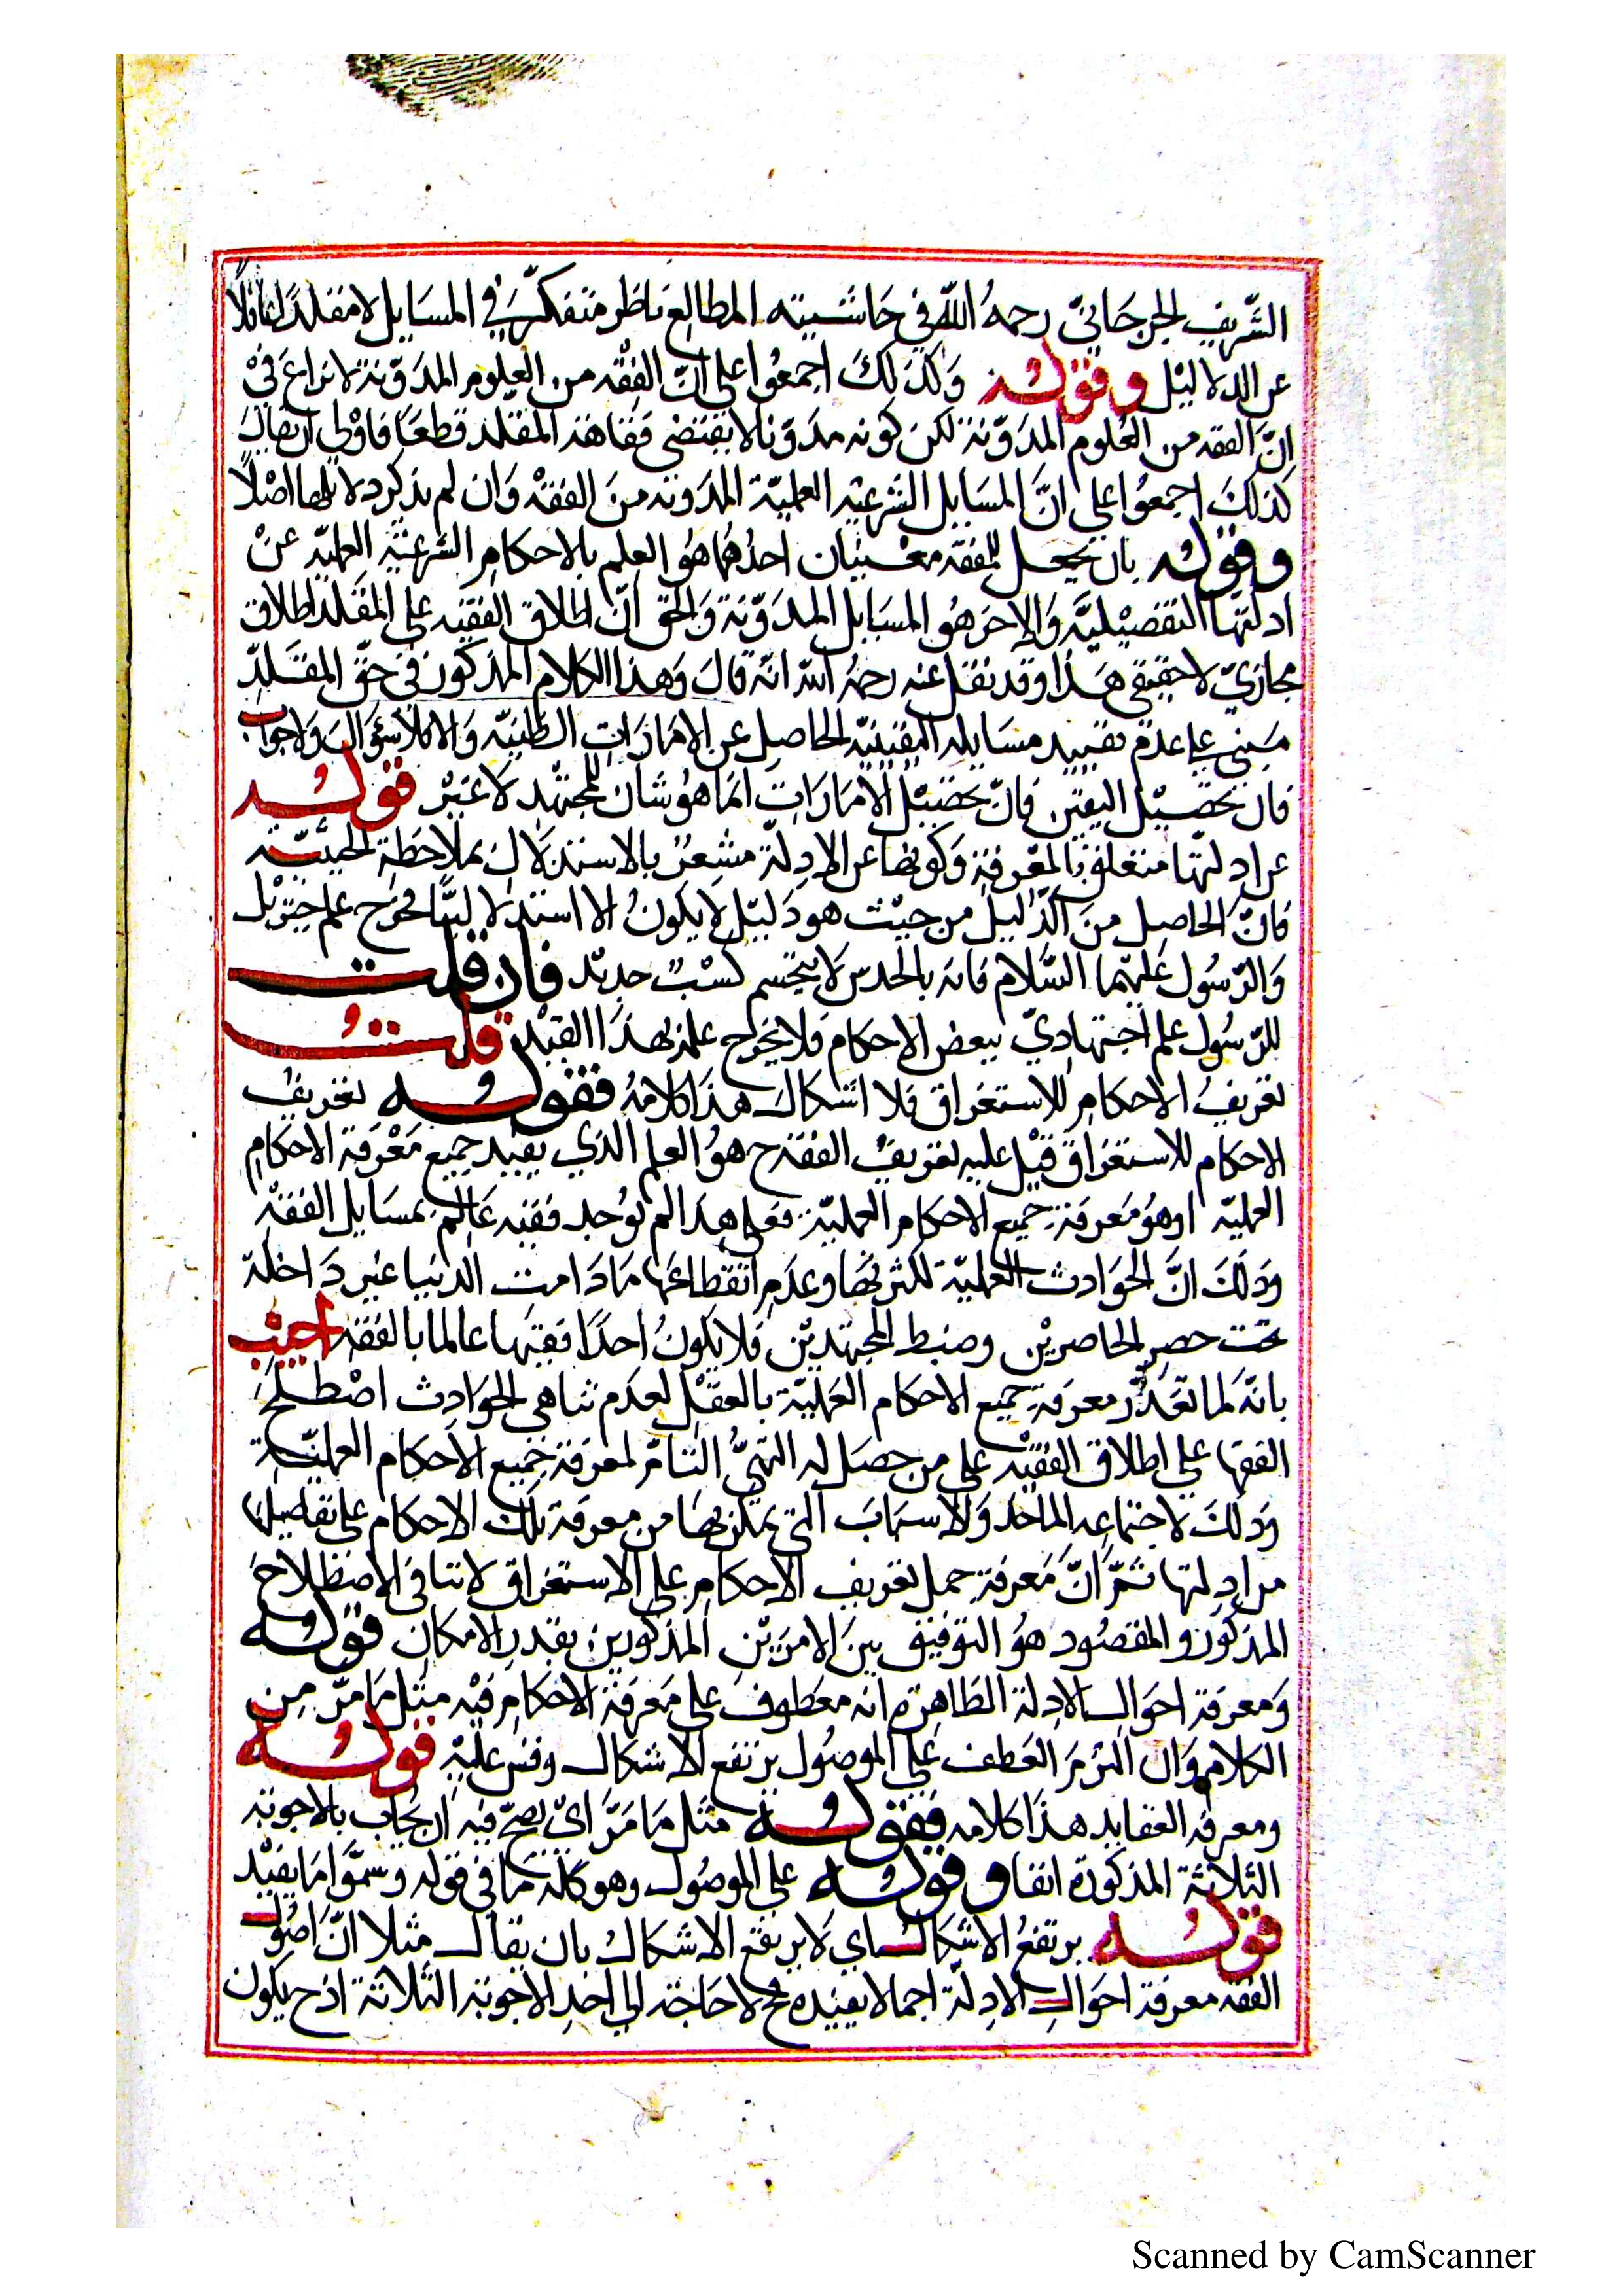 الشريف الجرجانيّ رحمهُ اللّه في حَاشيته المطالِع ناظر متفكّر في المسَايل لا مقلدًا غافلًا
عن الدلاليْل وقوله وَكذلكَ اجمعُوا على انّ الفِقْه من العلوم المدَوّنة لا نزاعَ في
انّ الفقه من العُلوم المدَوّنة لكن كونه مدَوّنا لا يقتضى فقاهة المقلد قطعًا فاوْلى ان يقالَ
كذلكَ اجمعُوا على انَّ المسَايل الشرعيّه العمليّة المدَونه منَ الفقْه وَان لم يذكر دلايلها اصْلًا
وقوله بان يجعل للفقه معنيان احدُهُما هُو العلم بالاحكام الشرعيّه العمليّه عنْ
ادلتها التفصيْليَّه وَالاخر هُو المسَايل المدَوّنة وَالحق انّ اطلاق الفقيْه على المقَلد اطلاق
مجازيّ لا حقيقى هَذا وقد نقل عنه رحمهُ اللّه انّه قالَ وَهذا الكلام المذكور في حقّ المقَلدِّ
مَبنى على عدم تقييد مسَايله اليقينيّه الحاصِل عن الامَارَاتِ الظنيّه وَالا فلا سؤَال وَلا جواب
فان تحصيْل اليقين فانّ تحصيْل الامَارَاتِ انمَا هُو شان المجتهْد لا غيْر قوله
عن ادِلّتها متعلق بالمعْرفة وَكونها عن الادِلّة مشعِرٌ بالاستدلال بملاحظة الحيثيّة
فانّ الحاصِل منَ الدَّليل من حيْث هو دَليْل لا يكونُ الا استدلاليًّا فخرَج علم جبريْل
وَالرّسُول عليْهما السَّلام فانه بالحدس لا يتجشم كسْبٍ جديْد فان قلت
للرّسُول علم اجتهاديّ ببعض الاحكام فلا يخرُج علمه بهذا القيْد قلتُ
تعريفُ الاحكام للاستغراق فلا اشكال هذا كلامُه فقوله تعريفُ
الاحكام للاستغرَاق قيْل عليه تعريفُ الفقه ح هُو العلم الذي يفيْد جميع مَعْرفة الاحكامِ
العمليّه اوهُو مَعرفة جميع الاحكام العمليّة فعلى هذا لم يُوجد فقيْه عَالم بمسَايل الفقْه
وَذلكَ انَّ الحوَادث العمليّة لكثرتهَا وعدَم انقطاعهَا مَا دَامت الدنيا غيْر دَاخلة
تحت حصر الحاصريْن وضبط المجتهديْن فلا يكونُ احدًا فقيها عالما بالفقه اجيْب
بانّه لما تعَذّر معرفة جميع الاحكام العمَليّة بالعقْل لعدم تناهي الحوَادث اصْطلحَ
الفقها على اطلاق الفقيْه على من حصَل له التهيُّ التامّ لمعرفة جميع الاحكام العمليّة
وَذلكَ لاجتماعِه الماخذ وَالاسبَابَ التى يمكن بهَا من معرفة تلك الاحكام على تفاصيلها
من ادِلتها ثمّ انّ مَعرفة حمل تعريف الاحكام على الاستغراق لا تنافى الاصْطلاحَ
المذكور والمقصُود هوُ التوفيق بينَ الامرَيْنِ المذكورين بقدر الامكان قوله
وَمعرفة احوَال الادِلة الظاهِرة انه معَطوفٌ على مَعرفة الاحكام فيْه مثل مَا مرّ من
الكلام وَان التزمَ العَطف على الموصُول يرتفع الاشكال وقس عليْهِ قوله
ومعرفة العقايد هذا كلامه فقوله مثل مَا مَرَّ ايْ يصحّ فيْه ان يُجاب بالاجوبَه
الثلاثة المذكورة انفا وقوله على الموصُول وهو كلمة مَا فى قوله وسمّوا مَا يفيْد
قوله يرتفعُ الاشكال اي لا يرتفع الاشكال بان يقال مثلا انّ اصُول
الفقه معرفة احوَال الادِلّة اجمالا يفيْده فح لا حَاجة الى احَد الاجوبة الثلاثة اذ ح يكون
Scanned by CamScanner